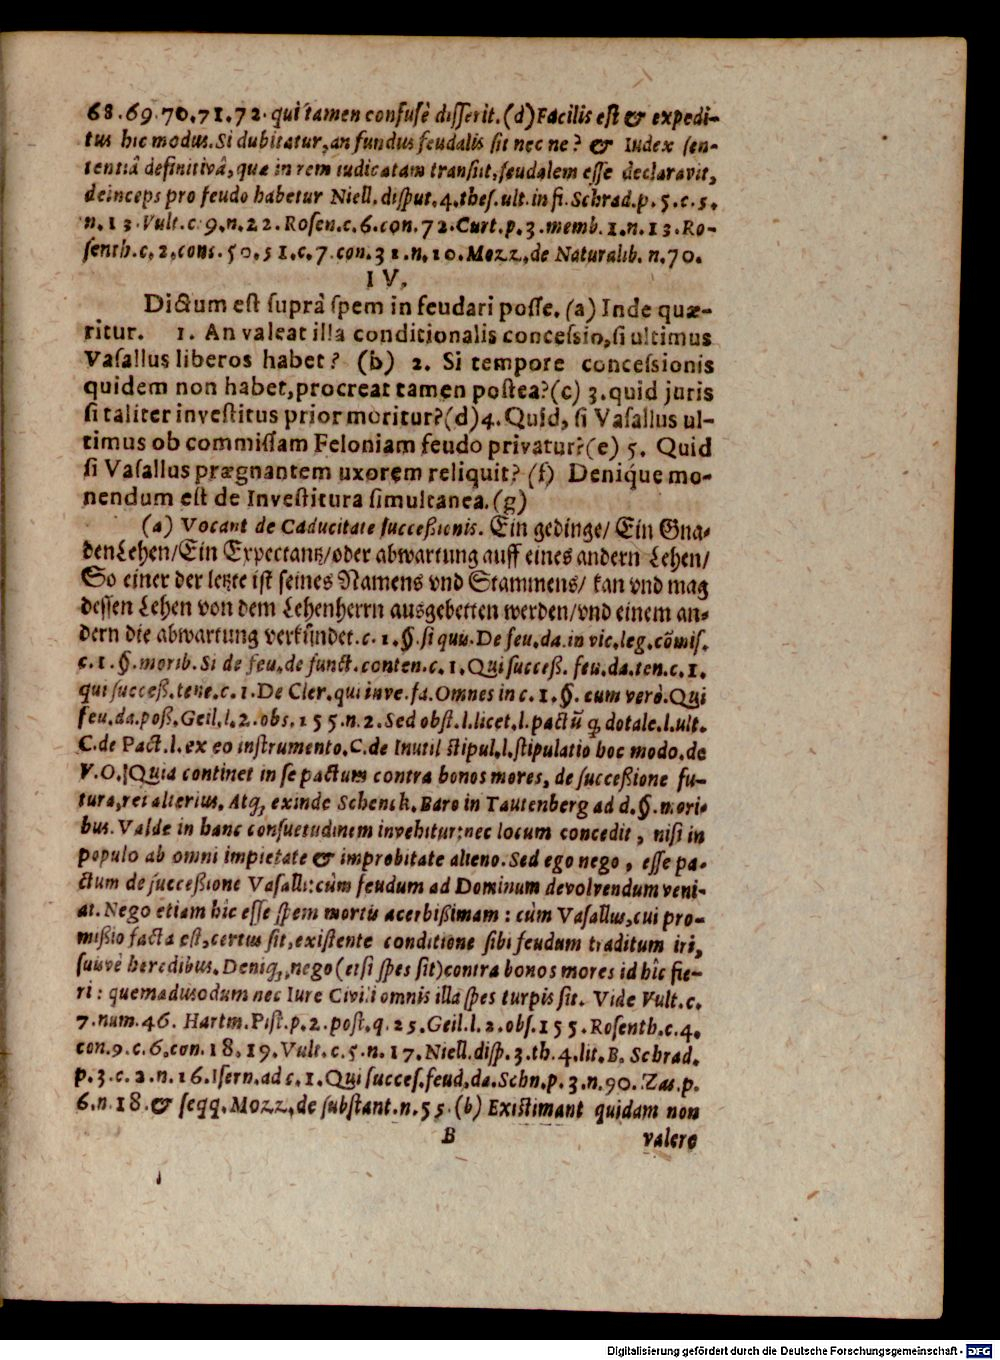 68.69.70.71.72. qui tamen confusè disserit. (d) Facilis est & expedi-
tus hic modus. Si dubitatur, an fundus feudalis sit nec ne? & Iudex sen-
tentiâ definitivâ, quæ in rem iudicatam transiit, feudalem esse declaravit,
deinceps pro feudo habetur Niell. disput. 4. thes. ult. in fi. Schrad. p. 5. c. 5.
n. 13. Vult. c. 9. n. 22. Rosen. c. 6. con. 72. Curt. p. 3. memb. 1. n. 13. Ro-
senth. c. 2. conc. 50. 51. c. 7. con. 31. n. 10. Mozz. de Naturalib. n. 70.
IV.
Dictum est suprà spem in feudari posse. (a) Inde quæ-
ritur. 1. An valeat illa conditionalis concessio, si ultimus
Vasallus liberos habet? (b) 2. Si tempore concessionis
quidem non habet, procreat tamen postea? (c) 3. quid juris
si taliter investitus prior moritur? (d) 4. Quid, si Vasallus ul-
timus ob commissam Feloniam feudo privatur? (e) 5. Quid
si Vasallus prægnantem uxorem reliquit? (f) Denique mo-
nendum est de Investitura simultanea. (g)
(a) Vocant de Caducitate successionis. Ein gedinge/ Ein Gna-
denLehen/ Ein Expectantz/ oder abwartung auff eines andern Lehen/
So einer der letzte ist seines Namens vnd Stammens/ kan vnd mag
dessen Lehen von dem Lehenherrn ausgebetten werden/ vnd einem an-
dern die abwartung verkündet. c. 1. §. si quis. De feu. da. in vic. leg. cōmis.
c. 1. §. morib. Si de feu. de funct. conten. c. 1. Qui success. feu. da. ten. c. 1.
qui success. tene. c. 1. De Cler. qui inve. fa. Omnes in c. 1. §. cum verò. Qui
feu. da. poss. Geil. l. 2. obs. 155. n. 2. Sed obst. l. licet. l. pactū q; dotale. l. ult.
C. de Pact. l. ex eo instrumento. C. de Inutil stipul. l. stipulatio hoc modo. de
V. O. Quia continet in se pactum contra bonos mores, de successione fu-
tura, rei alterius. Atq; exinde Schenck. Baro in Tautenberg ad d. §. mori-
bus. Valde in hanc consuetudinem invehitur: nec locum concedit, nisi in
populo ab omni impietate & improbitate alieno. Sed ego nego, esse pa-
ctum de successione Vasalli: cùm feudum ad Dominum devolvendum veni-
at. Nego etiam hîc esse spem mortis acerbissimam: cùm Vasallus, cui pro-
missio facta est, certus sit, existente conditione sibi feudum traditum iri,
suisvè heredibus. Deniq;, nego (etsi spes sit) contra bonos mores id hîc fie-
ri: quemadmodum nec Iure Civili omnis illa spes turpis sit. Vide Vult. c.
7. num. 46. Hartm. Pist. p. 2. post. q. 25. Geil. l. 2. obs. 155. Rosenth. c. 4.
con. 9. c. 6. con. 18. 19. Vult. c. 5. n. 17. Niell. disp. 3. th. 4. lit. B. Schrad.
p. 3. c. 2. n. 16. Isern. ad c. 1. Qui succes. feud. da. Schn. p. 3. n. 90. Zas. p.
6. n. 18. & seqq. Mozz. de substant. n. 55. (b) Existimant quidam non
B valere
Digitalisierung gefördert durch die Deutsche Forschungsgemeinschaft - DFG